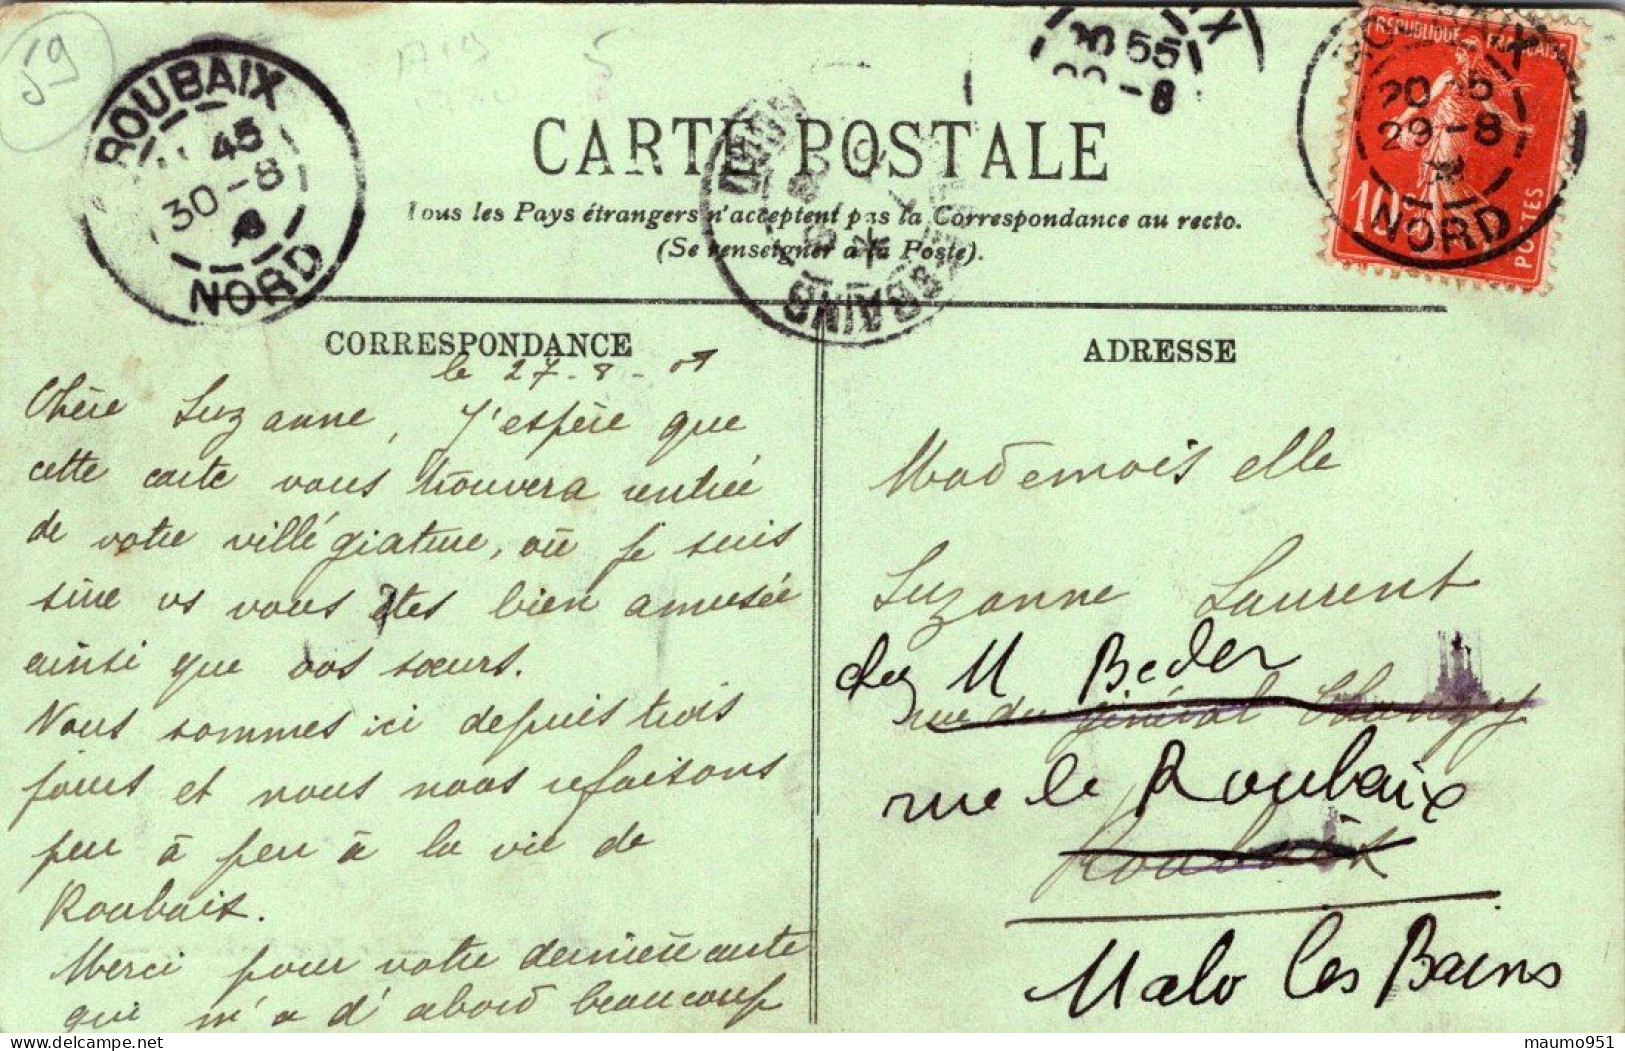 59
ROUBAIX
45
30-8
NORD
20 55
-8
X
REPUBLIQUE FRANÇAISE
20
29-8
10
POSTES
NORD
CARTE POSTALE
Tous les Pays étrangers n'acceptent pas la Correspondance au recto.
(Se renseigner à la Poste).
CORRESPONDANCE
ADRESSE
le 27-8-
Chère Suzanne, J'espère que
cette carte vous trouvera rentrée
de votre villégiature, où je suis
sûre vs vous êtes bien amusée
ainsi que vos sœurs.
Nous sommes ici depuis trois
jours et nous nous refaisons
peu à peu à la vie de
Roubaix.
Merci pour votre dernière carte
qui m'a d'abord beaucoup
Mademoiselle
Suzanne Laurent
chez M Beder
rue du général Chanzy
rue de Roubaix
Roubaix
Malo les Bains
© maumo951